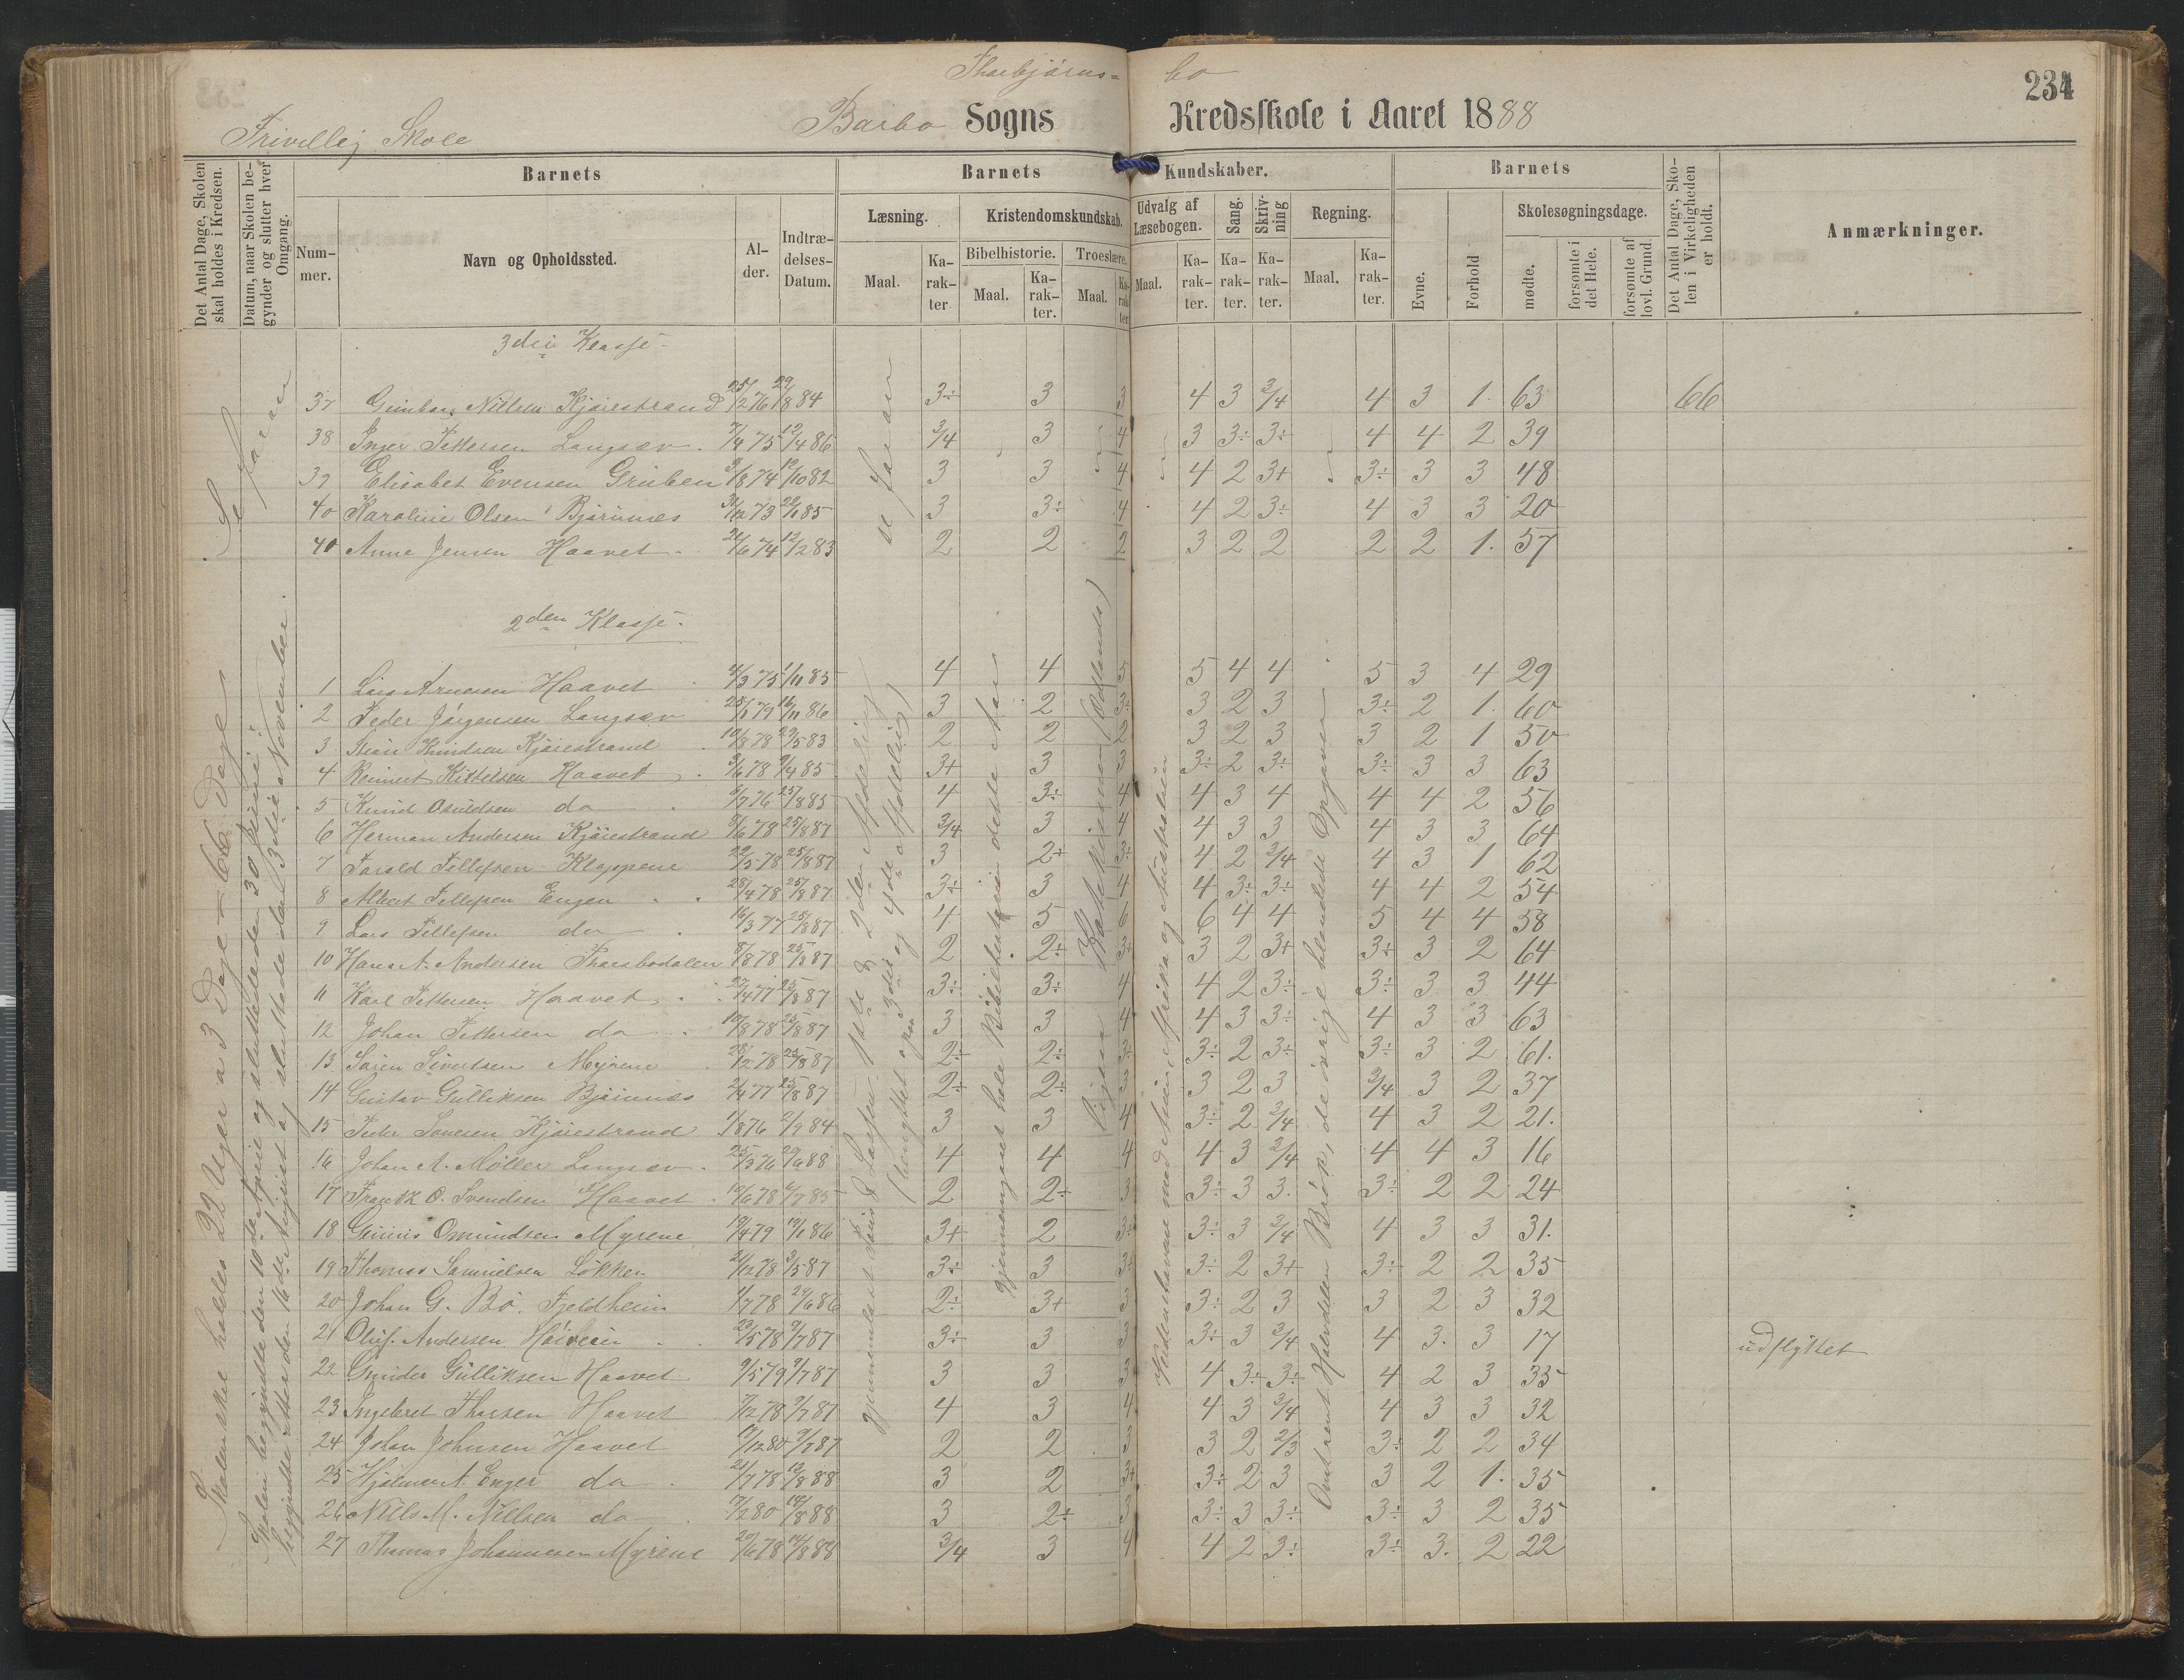 Thorbjørns= bo
234
Frivillig Skole
Barbo Sogns Kredsskole i Aaret 1888
Det Antal Dage, Skolen skal holdes i Kredsen.
Datum, naar Skolen begynder og slutter hver Omgang.
Barnets
Barnets Kundskaber.
Barnets
Det Antal Dage, Skolen i Virkeligheden er holdt.
Anmærkninger.
Nummer.
Navn og Opholdssted.
Alder.
Indtrædelses-Datum.
Læsning.
Kristendomskundskab.
Udvalg af Læsebogen.
Sang.
Skrivning
Regning.
Evne.
Forhold
Skolesøgningsdage.
Bibelhistorie.
Troeslære.
Maal.
Karakter
Maal.
Karakter.
Maal.
Karakter
Maal.
Karakter.
Karakter.
Karakter.
Maal.
Karakter.
mødte.
forsømte i det Hele.
forsømte af lovl. Grund.
Se foran
Skolen skal holdes 22 Uger a 3 Dage = 66 Dage
Skolen begyndte den 10de April og sluttede den 30 Juni;
begyndte atter den 16de August og sluttede den 3die November.
se foran
3die Klasse
37 Gunbor Nielsen Kjøiestrand 25/12 76 29/8 84 3÷ 3 3 4 3 3/4 4 3 1. 63 66
38 Inger Pettersen Langsæv 7/4 75 12/4 86 3/4 3 4 3 3÷ 3÷ 4 4 2 39
39 Elisabet Evensen Gruben 9/8 74 12/10 82 3 3 4 4 2 3+ 3÷ 3 3 48
40 Karoline Olsen Bjørnnæs 31/12 73 22/1 85 3 3÷ 4 4 2 3÷ 4 3 3 20
40 Anne Jensen Haavet 21/6 74 12/2 83 2 2 2 3 2 2 2 2 1. 57
2den Klasse
1 Lars Arnesen Haavet 4/3 75 1/11 85 4 4 5 5 4 4 5 3 4 29
2 Peder Jørgensen Langsæv 25/1 79 16/11 86 3 2 3÷ 3 2 3 3÷ 2 1. 60
3 Stian Knudsen Kjøiestrand 10/8 78 29/5 83 2 2 2 3 2 3 3 2 1 50
4 Reinert Kittelsen Haavet 3/6 78 9/4 85 3+ 3 3 3÷ 2 3÷ 3÷ 3 3 63
5 Knud Osuldsen do 6/7 76 25/8 85 4 3÷ 4 4 3 4 4 4 2 56
6 Herman Andersen Kjøiestrand 8/6 78 25/8 87 3/4 3 4 4 3 3 4 3 3 64
7 Tarald Tellefsen Kloppene 22/5 78 25/8 87 3 2+ 3÷ 4 2 3/4 4 3 1 62
8 Albert Tellefsen Engen 28/4 78 25/8 87 3÷ 3 4 4 3÷ 3÷ 4 4 2 54
9 Lars Tellefsen do 16/3 77 25/8 87 4 5 6 6 4 4 5 4 4 58
10 Hans A. Andersen Thorsbodalen 8/8 78 25/8 87 2 2÷ 3+ 3 2 3+ 3÷ 3 2 64
11 Karl Pettersen Haavet 27/4 77 25/8 87 3÷ 3÷ 4 4 2 3÷ 3÷ 3 3 44
12 Johan Pettersen do 10/8 78 25/8 87 3 3 4 4 3 3÷ 4 3 3 63
13 Søren Sivertsen Myrene 28/12 78 25/8 87 2÷ 2÷ 3÷ 3÷ 2 3÷ 3÷ 3 2 61.
14 Gustav Gulliksen Bjørnnæs 2/4 77 25/8 87 2÷ 2÷ 3 3 2 3 3/4 3 2 37
15 Peder Tønesen Kjøiestrand 1/8 76 2/9 84 3 3 4 3÷ 2 3/4 4 3 2 21.
16 Johan A. Møller Langsæv 25/5 76 29/6 88 4 4 4 4 3 3/4 4 4 3 16
17 Frankk O. Svendsen Haavet 19/6 78 6/7 85 2 2÷ 3 3÷ 3 3. 3÷ 2 2 24
18 Gunnius Omundsen Myrene 19/4 79 19/1 86 3+ 2 3÷ 3÷ 3 3/4 4 3 3 31.
19 Thomas Samuelsen Løkken 21/12 78 3/5 87 3÷ 3 3÷ 3÷ 2 3+ 3÷ 2 2 35
20 Johan G. Bø. Fjeldheim 1/7 78 29/6 86 2÷ 3+ 3 3÷ 2 3 3 2 3 32
21 Oluf Andersen Høiveien 23/5 78 9/7 87 3÷ 3 3 3÷ 3 3/4 4 3. 3 17 udflyttet
22 Gunder Gulliksen Haavet 9/5 79 9/7 87 3 3 3 4 3÷ 3÷ 4 2 3 35
23 Ingebret Thorsen Haavet 7/12 78 9/7 87 4 3 4 4 3 3/4 4 3 3 32
24 Johan Johnsen Haavet 17/12 80 9/7 87 2 2 3 3 2 2/3 3÷ 2 2 34
25 Hjalmar A. Enger do 21/7 78 13/8 88 3 2 3+ 3÷ 2 3 3 2 1. 35
26 Niels M. Nielsen do 17/2 80 14/8 88 3 2÷ 3 3÷ 3 3÷ 3÷ 3 2 35
27 Thomas Johannesen Myrene 20/6 78 14/8 88 3/4 3 4 4 2 3÷ 3÷ 3. 2 22
gjennemlæst Jens & Lassen 1ste & 2den Afdeling
(benyttet ogsaa 3die og 4de Afdeling)
gjennemgaaet hele Bibelhistorien dette Aar
Ligesaa Katekismen (Udlands)
Verdenshavene med Asien, Afrika og Australien
Omtrent Halvdelen Brøk, de øvrige blandede Opgaver